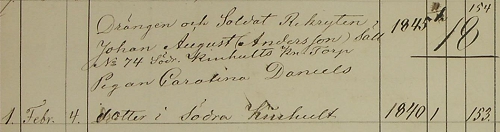 154
Drängen och Soldat Rekryten
Johan August (Andersson) Sätt 1845 18
No 74 Södr. Kinhults Kn. Torp
Pigan Carolina Daniels
1. Febr. 4. dotter i Södra Kinhult 1840 1 153.